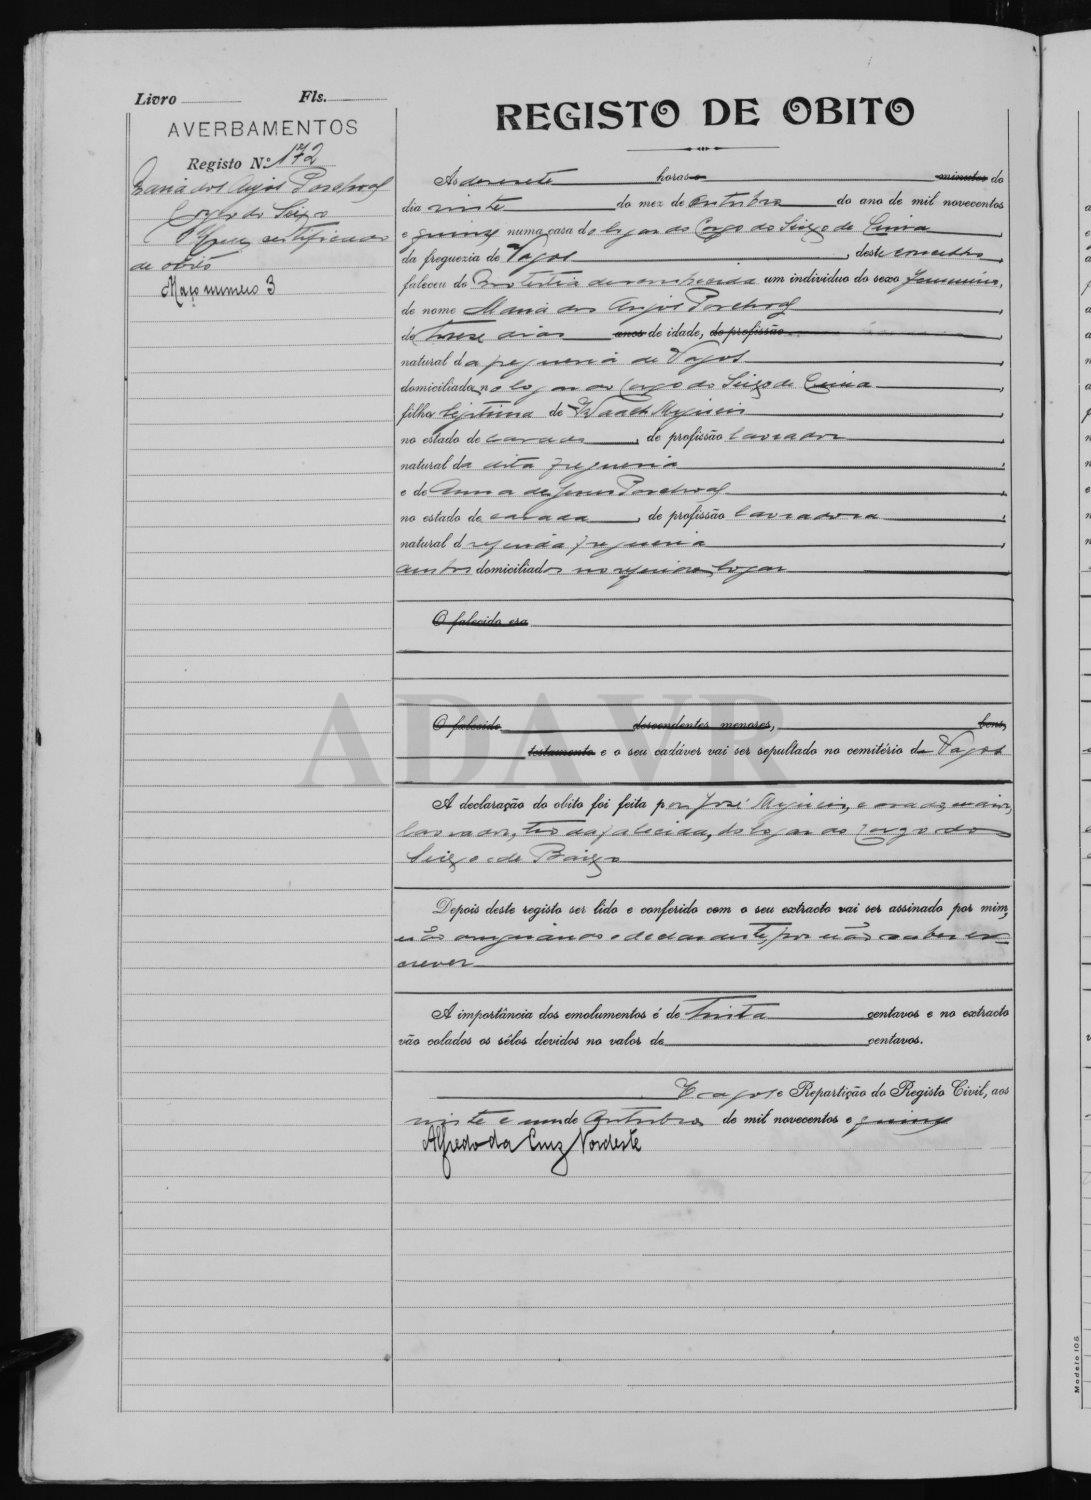 Livro Fls.
AVERBAMENTOS
Registo N.º 172
Maria dos Anjos Parchoal
Corgo do Seixo
certificado
de obito
Maço numero 3
REGISTO DE OBITO
As dezasete horas e minutos do
dia vinte do mez de outubro do ano de mil novecentos
e quinze numa casa do logar do Corgo do Seixo de Cima
da freguezia de Vagos, deste concelho
faleceu de desconhecida um individuo do sexo femenino,
de nome Maria dos Anjos Parchoal,
de treze dias anos de idade, de profissão
natural da freguesia de Vagos,
domiciliada no logar do Corgo do Seixo de Cima,
filha legitima de
no estado de casado, de profissão lavrador,
natural da dita freguesia,
e de Anna de Jesus Parchoal,
no estado de casada, de profissão lavradora,
natural d freguesia,
ambos domiciliados no logar
O falecido era
O falecido descendentes menores, bens,
testamento e o seu cadáver vai ser sepultado no cemitério de Vagos
A declaração do obito foi feita por José casado, maior,
lavrador, tio da falecida, do logar do Corgo do
Seixo de Baixo
Depois deste registo ser lido e conferido com o seu extracto vai ser assinado por mim,
não o declarante, por não saber es-
crever
A importância dos emolumentos é de trinta centavos e no extracto
vão colados os sêlos devidos no valor de centavos.
Vagos e Repartição do Registo Civil, aos
vinte e um de Outubro de mil novecentos e quinze
Alfredo da Cruz Nordeste
ADAVR
Modelo 106